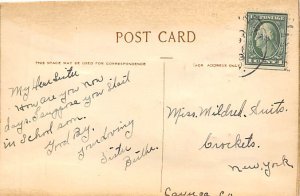 POST CARD
THIS SPACE MAY BE USED FOR CORRESPONDENCE
FOR ADDRESS ONLY
1 CENT 1
My Dear Sister
How are you now
days. I suppose you start
in School soon.
Good By.
Your loving
Sister
Miss. Mildred
Crockets.
New York
Cayuga Co.